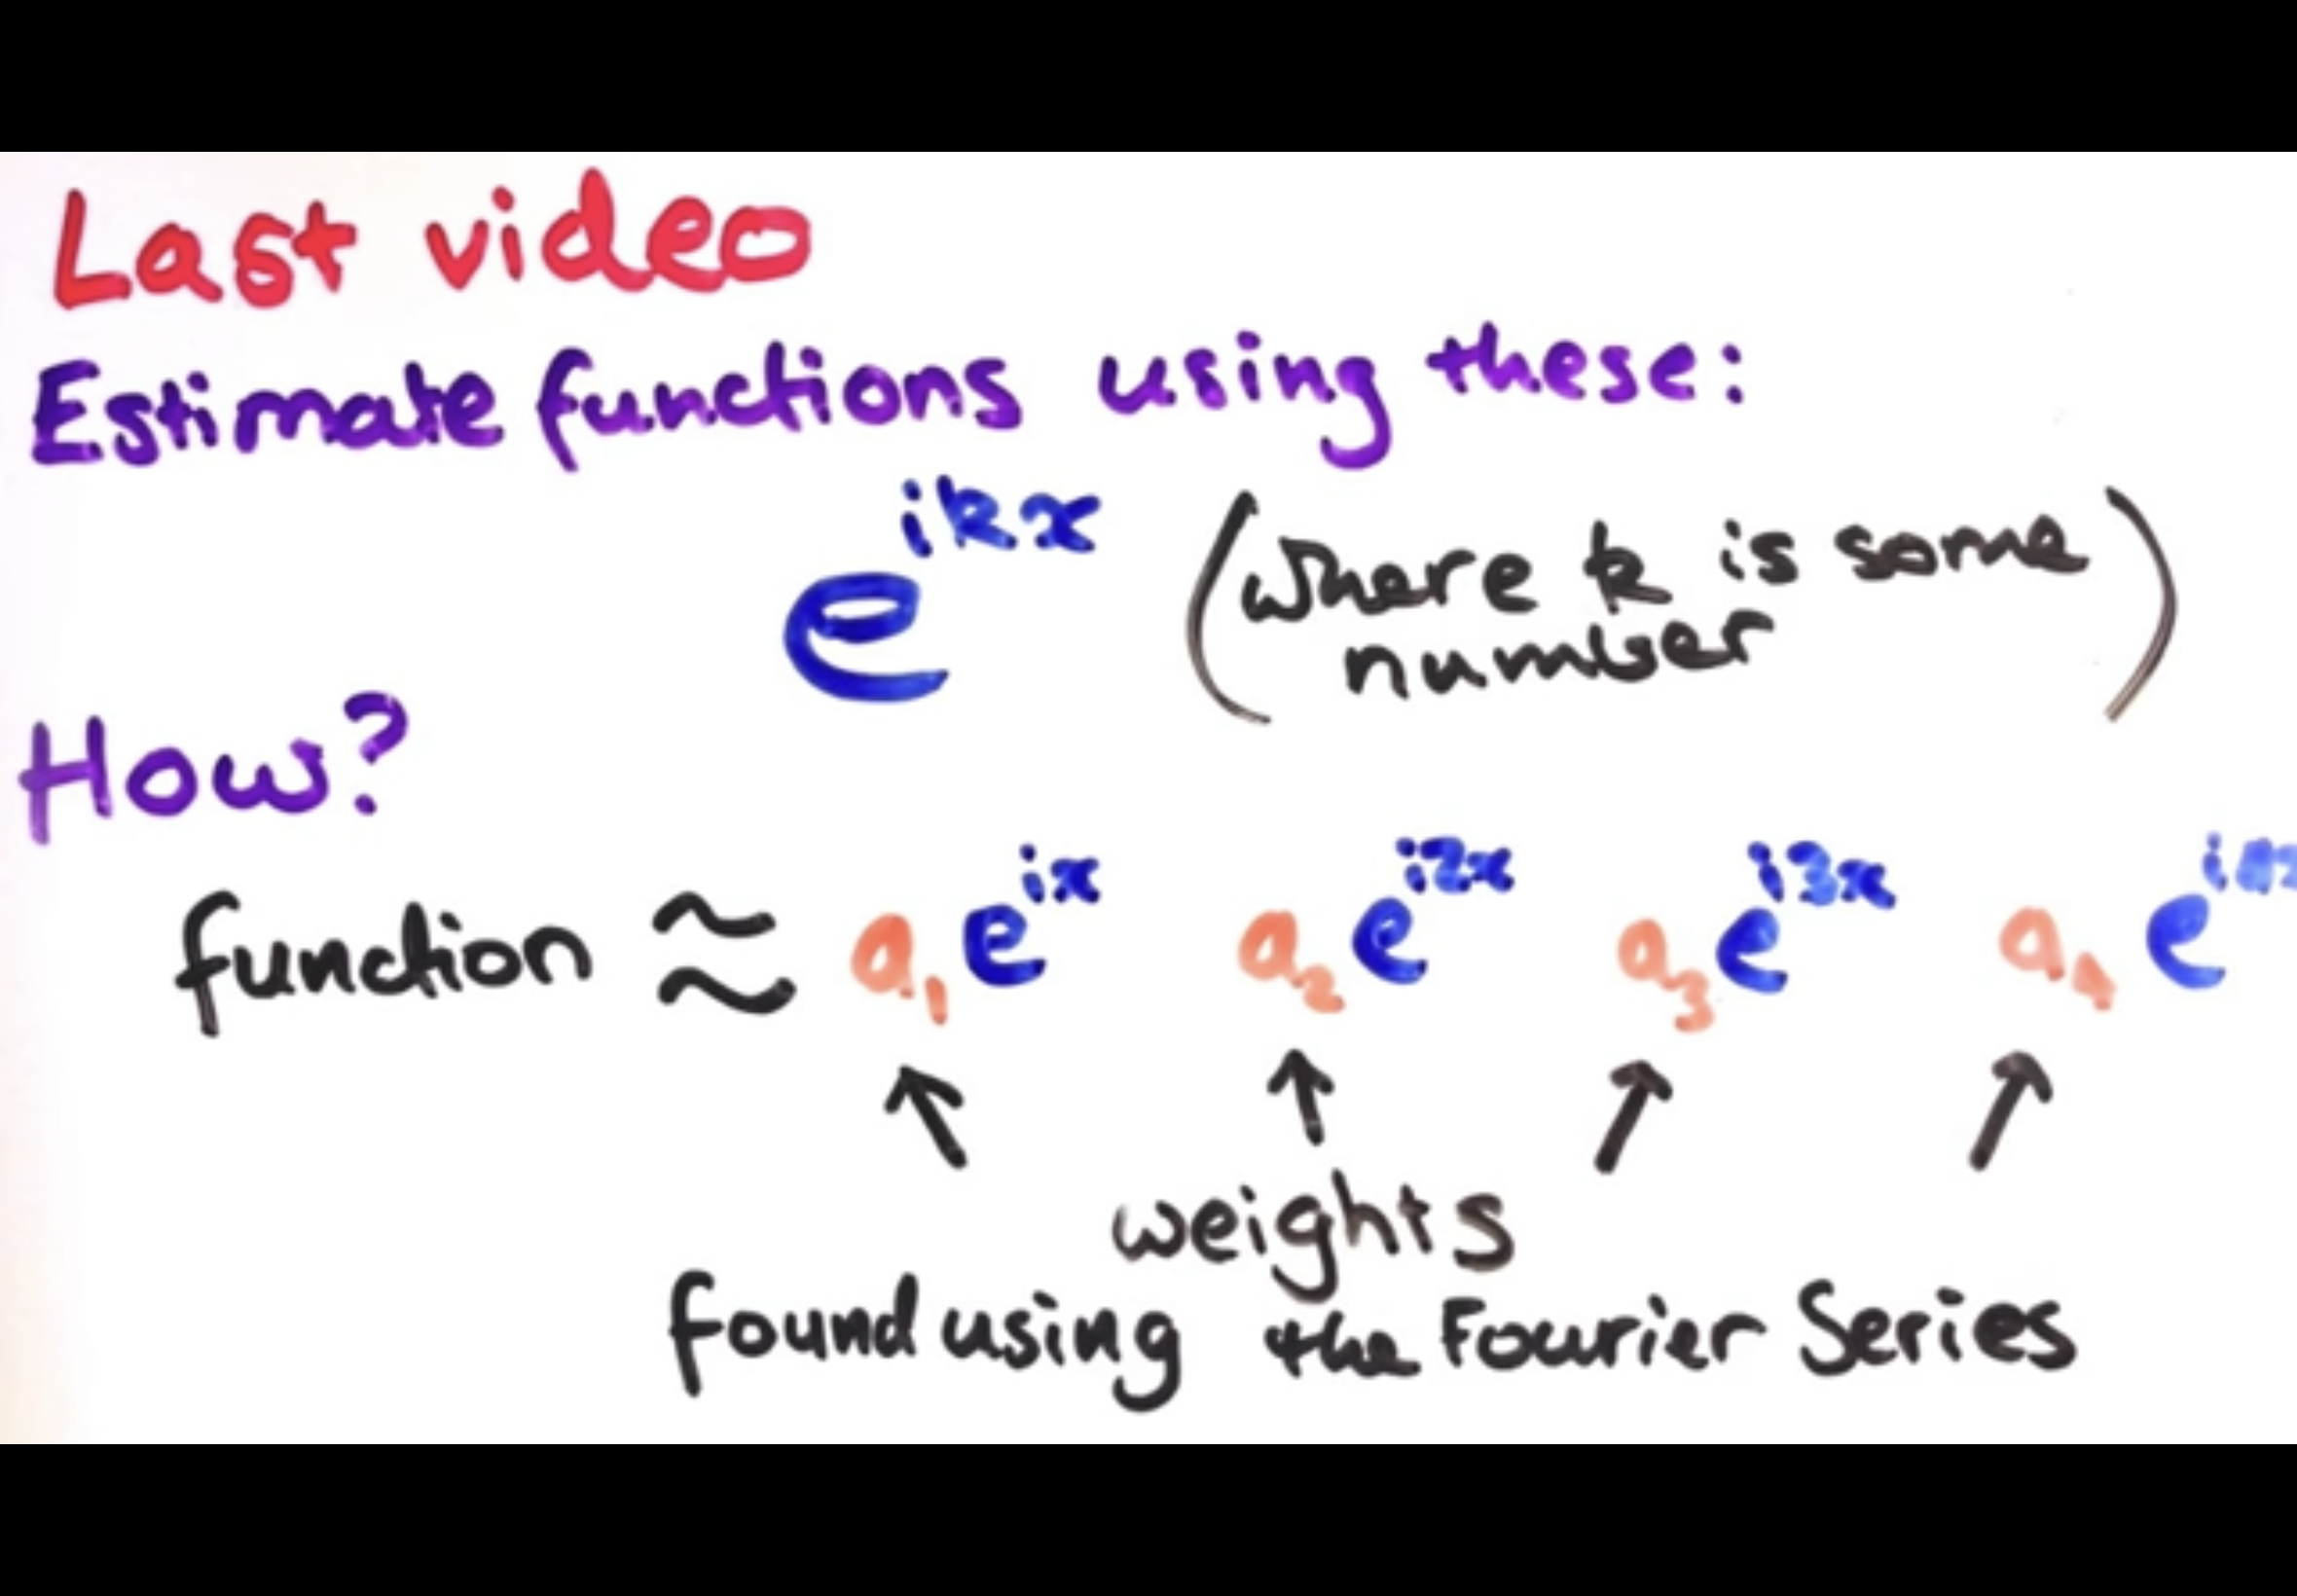 Last video
Estimate functions using these:
e^{ikx} (where k is some
number)
How?
function ≈ a₁e^{ix} a₂e^{i2x} a₃e^{i3x} a₄e
↑ ↑ ↑ ↑
weights
found using the Fourier Series